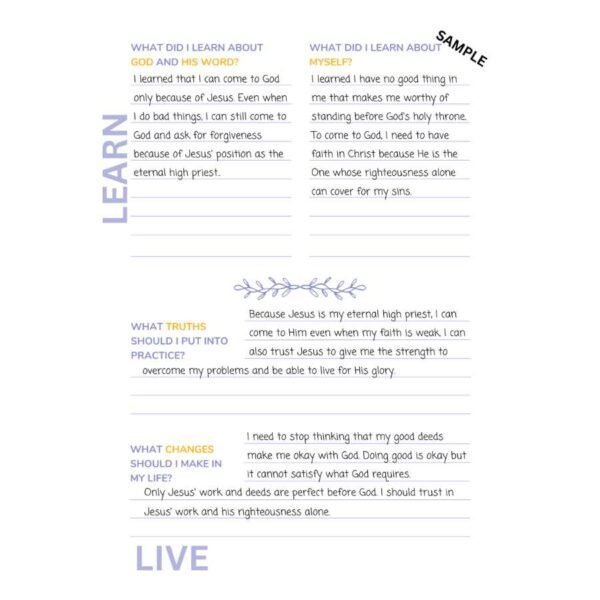 SAMPLE
LEARN
WHAT DID I LEARN ABOUT
GOD AND HIS WORD?
I learned that I can come to God
only because of Jesus. Even when
I do bad things, I can still come to
God and ask for forgiveness
because of Jesus' position as the
eternal high priest.
WHAT DID I LEARN ABOUT
MYSELF?
I learned I have no good thing in
me that makes me worthy of
standing before God's holy throne.
To come to God, I need to have
faith in Christ because He is the
One whose righteousness alone
can cover for my sins.
WHAT TRUTHS
SHOULD I PUT INTO
PRACTICE?
Because Jesus is my eternal high priest, I can
come to Him even when my faith is weak. I can
also trust Jesus to give me the strength to
overcome my problems and be able to live for His glory.
WHAT CHANGES
SHOULD I MAKE IN
MY LIFE?
I need to stop thinking that my good deeds
make me okay with God. Doing good is okay but
it cannot satisfy what God requires.
Only Jesus' work and deeds are perfect before God. I should trust in
Jesus' work and his righteousness alone.
LIVE